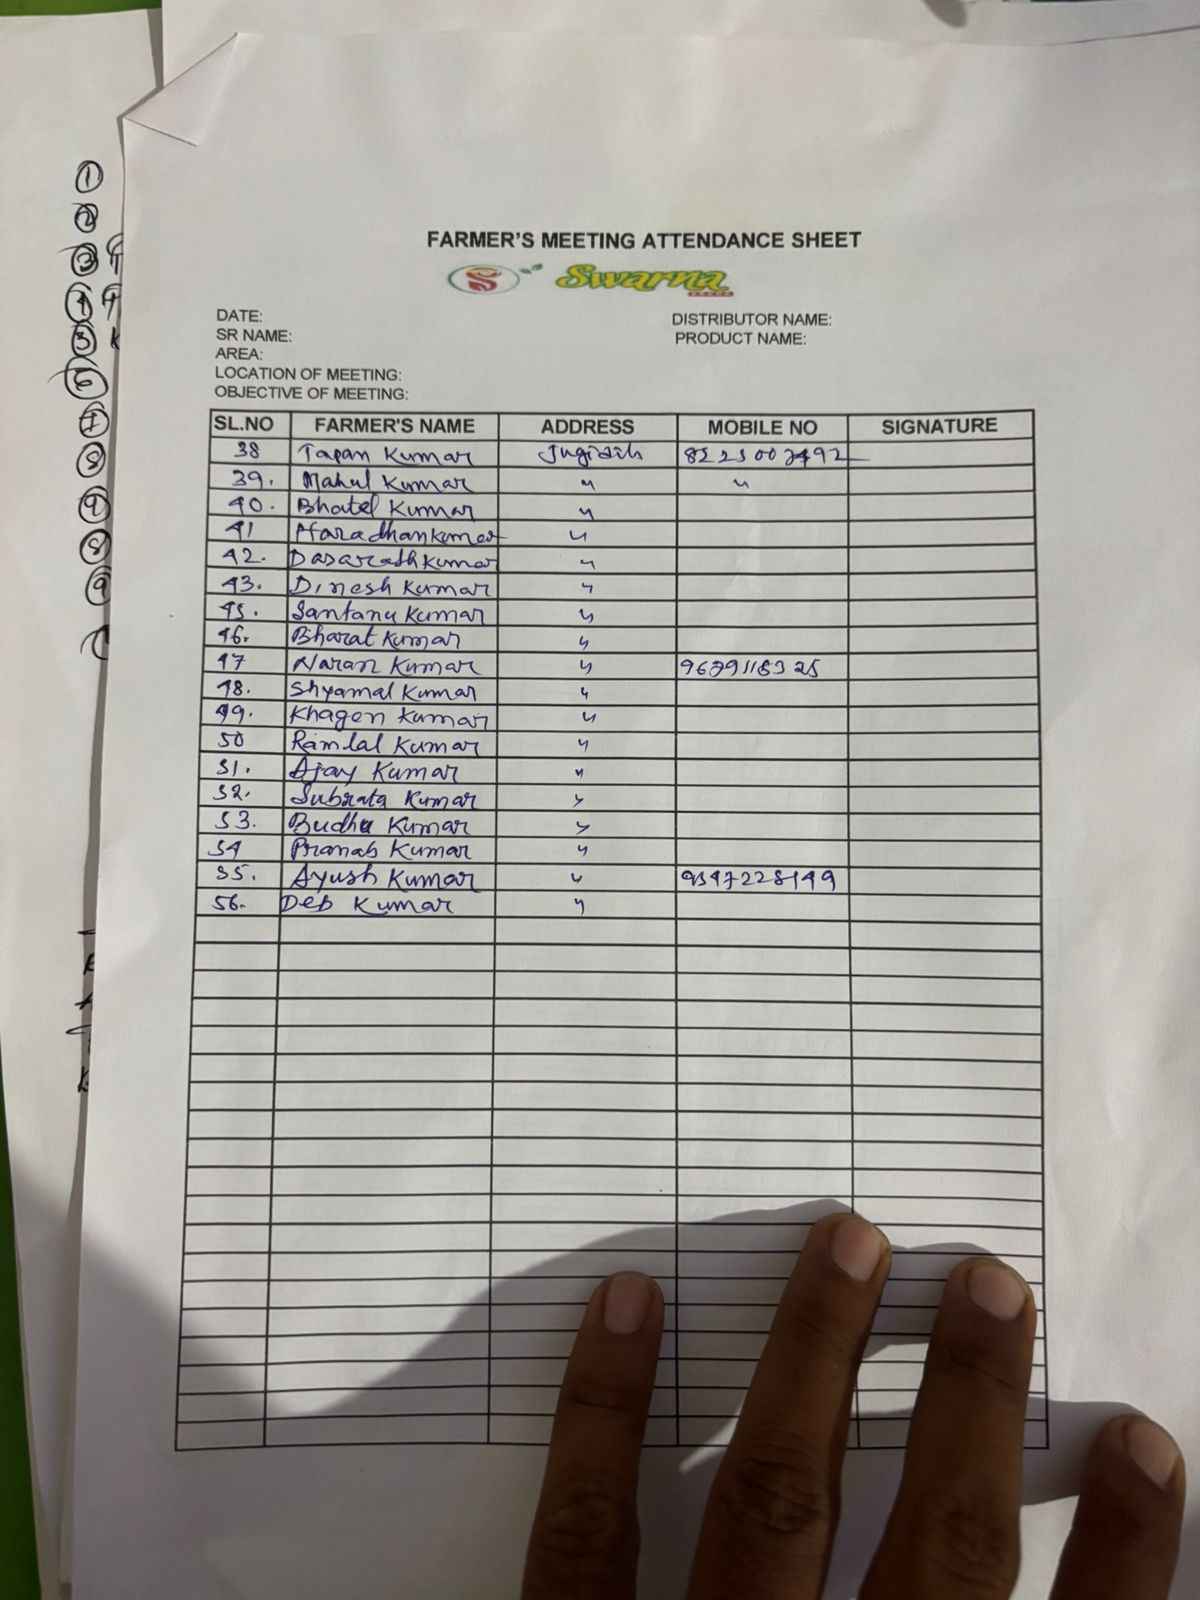 FARMER'S MEETING ATTENDANCE SHEET
Swarna
DATE:
DISTRIBUTOR NAME:
SR NAME:
PRODUCT NAME:
AREA:
LOCATION OF MEETING:
OBJECTIVE OF MEETING:
SL.NO FARMER'S NAME ADDRESS MOBILE NO SIGNATURE
38 Tapan Kumar Jugidih
39. Mahul Kumar " "
40. Bhatel Kumar "
41 Haradhan kumar "
42. Dasarath kumar "
43. Dinesh Kumar "
45. Santanu Kumar "
46. Bharat Kumar "
47 Naran Kumar "
48. Shyamal Kumar "
49. Khagen Kumar "
50 Ramlal Kumar "
51. Ajay Kumar "
52. Subrata Kumar "
53. Budhu Kumar "
54 Pranab Kumar "
55. Ayush Kumar " 9547228149
56. Deb Kumar "